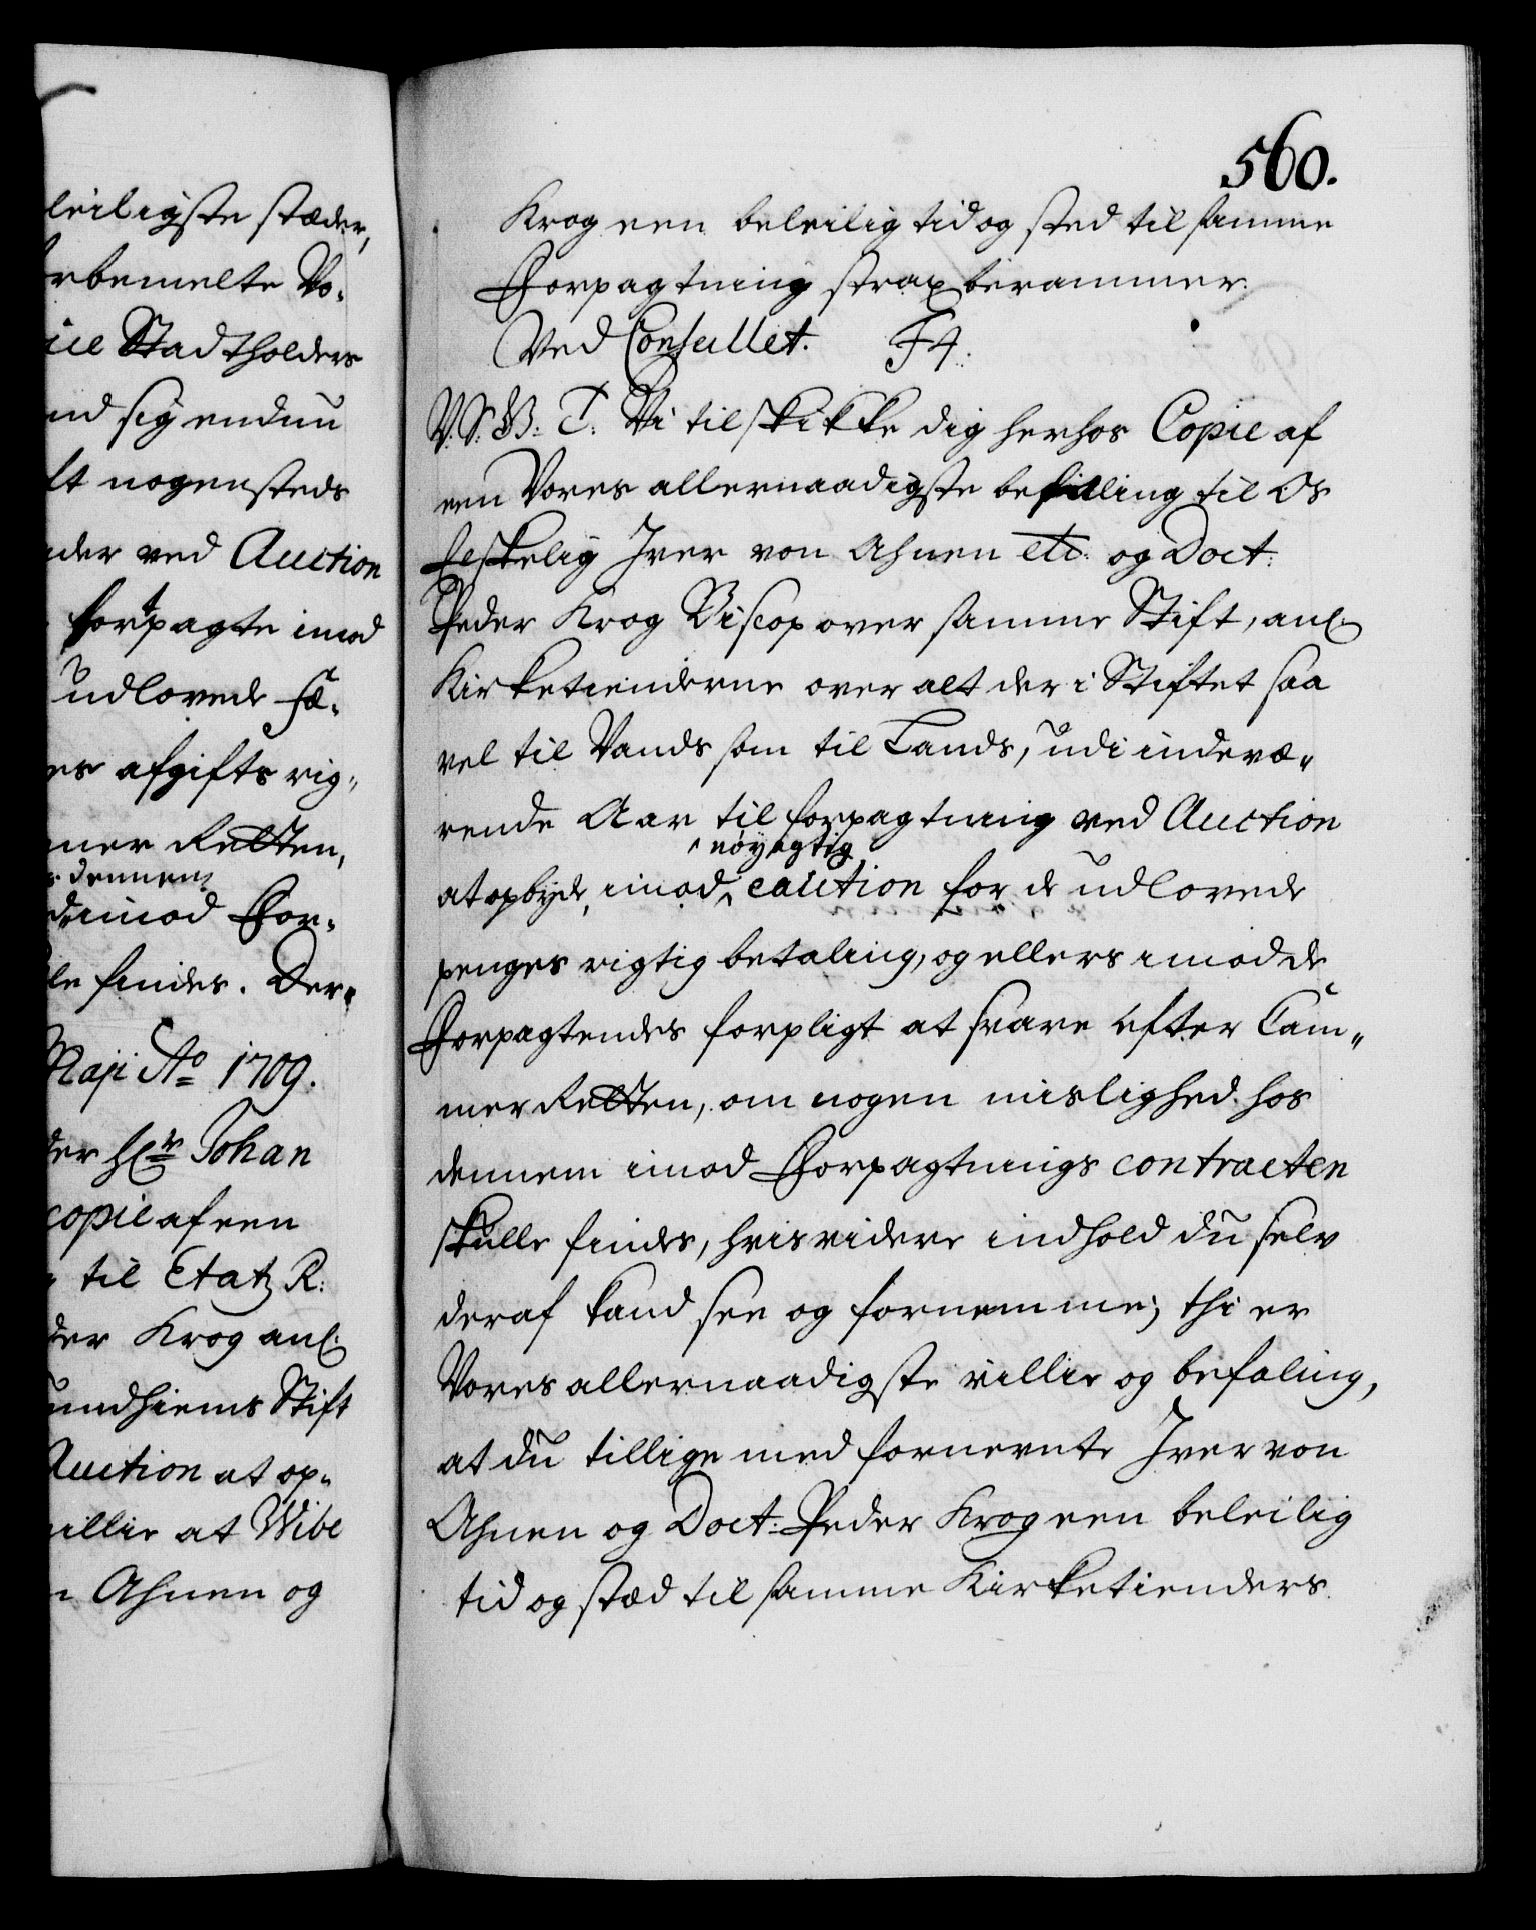 leiligste stæder,
rbemelte Vo-
ice Stadtholders
nd sig enduu
lt nogensteds
der ved Auction
forpagte imod
udlovede Fæ-
es afgifts rig-
mer Retten,
dennem
imod For-
le findes. Der-
Maji Ao 1709.
der Hr Johan
copie af een
til Etatz R:
der Krog anl.
undhiems Stift
Auction at op-
villie at Wibe
Ahnen og
560.
Krog een beleilig tid og sted til samme
Forpagtning strax berammer.
Ved Consullet. F4.
V.S.G.B.T. Vi tilskikke dig herhos Copie af
een Vores allernaadigste befaling til Os
Elskelig Iver von Ahnen etc: og Doct:
Peder Krog Biscop over samme Stift, anl.
Kirketienderne over alt der i Stiftet saa
vel til Vands som til Lands, udi indevæ-
rende Aar til forpagtning ved Auction
nöyagtig
at opbyde, imod caution for de udlovede
penges rigtig betaling, og ellers imod de
Forpagtendes forpligt at svare efter Cam-
mer Retten, om nogen mislighed hos
dennem imod Forpagtnings contracten
skulle findes, hvis videre indhold du selv
deraf kand see og fornemme; thi er
Vores allernaadigste villie og befaling,
at du tillige med fornevnte Iver von
Ahnen og Doct: Peder Krog een beleilig
tid og stæd til samme Kirketienders